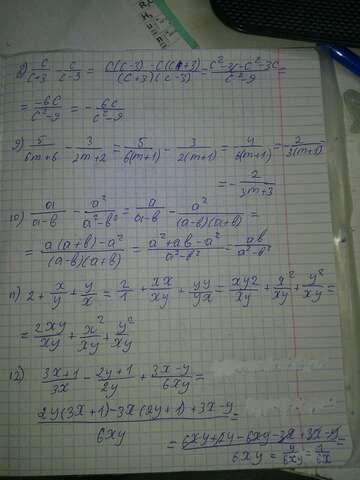 8) c/(c+3) - c/(c-3) = (c(c-3) - c(c+3))/((c+3)(c-3)) = (c²-3c-c²-3c)/(c²-9) =
= (-6c)/(c²-9) = - 6c/(c²-9)
9) 5/(6m+6) - 3/(2m+2) = 5/(6(m+1)) - 3/(2(m+1)) = 4/(6(m+1)) = 2/(3(m+1))
= - 2/(3m+3)
10) a/(a-b) - a²/(a²-b²) = a/(a-b) - a²/((a-b)(a+b)) =
= (a(a+b)-a²)/((a-b)(a+b)) = (a²+ab-a²)/(a²-b²) = ab/(a²-b²)
11) 2 + x/y + y/x = 2/1 + xx/xy + yy/yx = xy2/xy + x²/xy + y²/xy =
= 2xy/xy + x²/xy + y²/xy
12) (3x+1)/3x - (2y+1)/2y + (3x-y)/6xy =
(2y(3x+1)-3x(2y+1)+3x-y)/6xy =
= (6xy+2y-6xy-3x+3x-y)/6xy = y/6xy = 1/6x